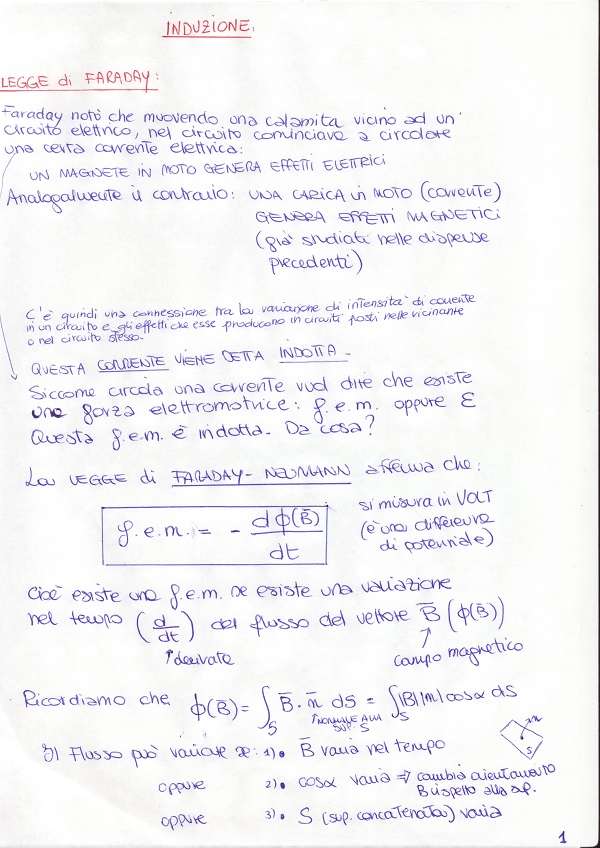 INDUZIONE.
LEGGE di FARADAY:
Faraday notò che muovendo una calamita vicino ad un
circuito elettrico, nel circuito cominciava a circolare
una certa corrente elettrica:
UN MAGNETE IN MOTO GENERA EFFETTI ELETTRICI
Analogalmente il contrario: UNA CARICA in MOTO (corrente)
GENERA EFFETTI MAGNETICI
(già studiati nelle dispense
precedenti)
C'è quindi una connessione tra la variazione di intensità di corrente
in un circuito e gli effetti che esse producono in circuiti posti nelle vicinante
o nel circuito stesso.
QUESTA CORRENTE VIENE DETTA INDOTTA.
Siccome circola una corrente vuol dire che esiste
una forza elettromotrice: f.e.m. oppure ε
Questa f.e.m. è indotta. Da cosa?
La LEGGE di FARADAY-NEUMANN afferma che:
f.e.m. = - dϕ(B̄)/dt
si misura in VOLT
(è una differenza
di potenziale)
Cioè esiste una f.e.m. se esiste una variazione
nel tempo (d/dt) del flusso del vettore B̄ (ϕ(B̄))
↑derivata
↑
campo magnetico
Ricordiamo che ϕ(B̄) = ∫S B̄ · n̄ dS = ∫S |B||n| cosα dS
↑NORMALE ALLA
SUP. S
n
S
Il Flusso può variare se: 1)• B̄ varia nel tempo
oppure 2)• cosα varia ⇒ cambia orientamento
B rispetto alla sup.
oppure 3)• S (sup. concatenata) varia
1